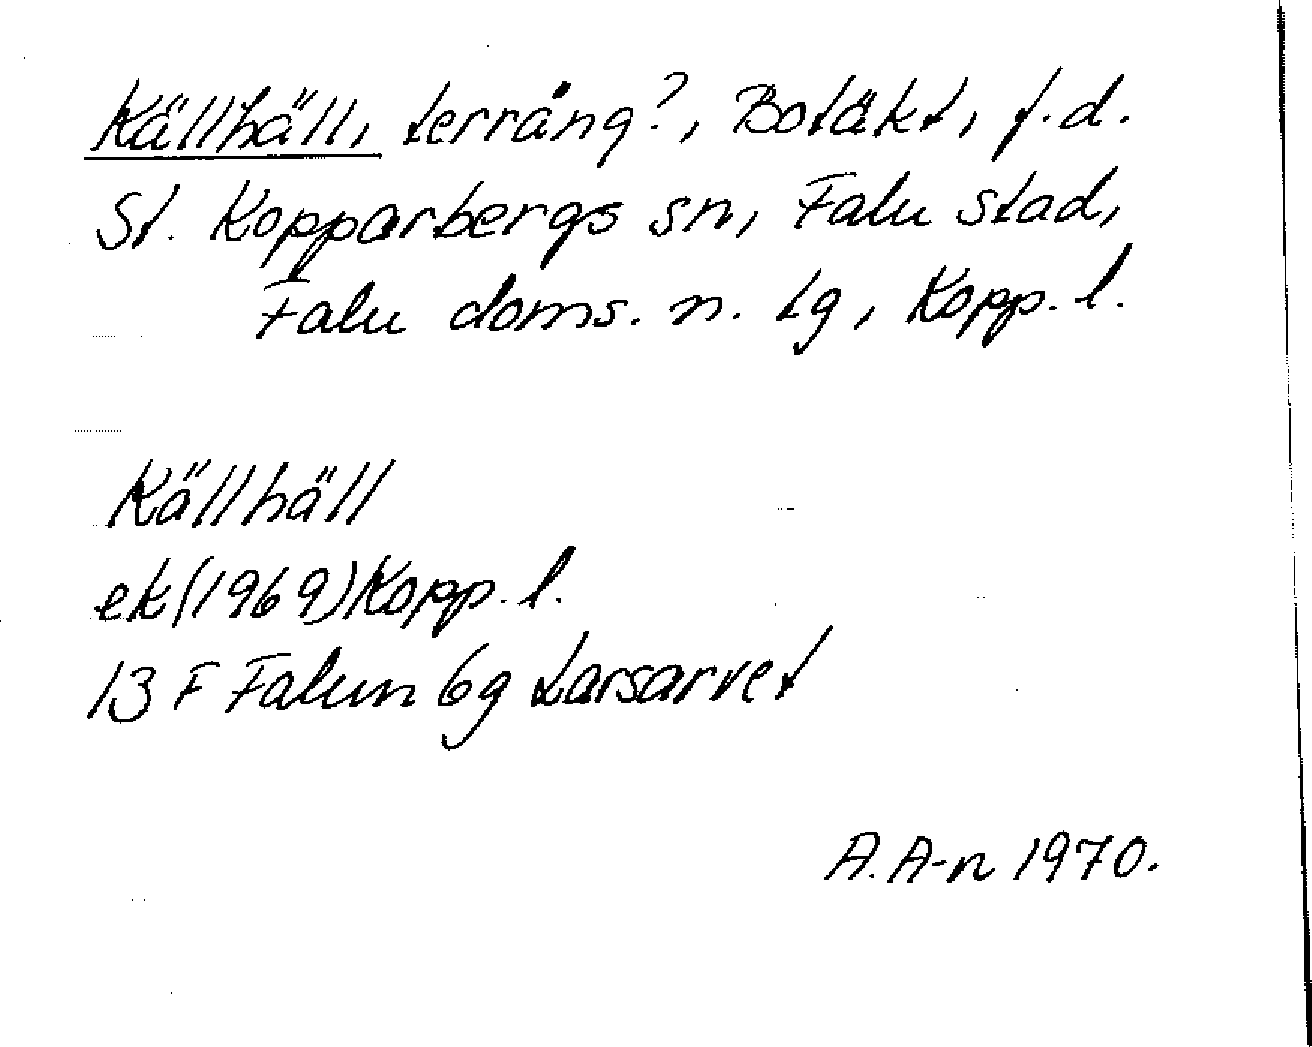 Källhäll, terräng?, Botäkt, f.d.
St. Kopparbergs sn, Falu stad,
Falu doms. n. tg, Kopp. l.
Källhäll
ek(1969)Kopp. l.
13 F Falun 6g Larsarvet
A. A-n 1970.